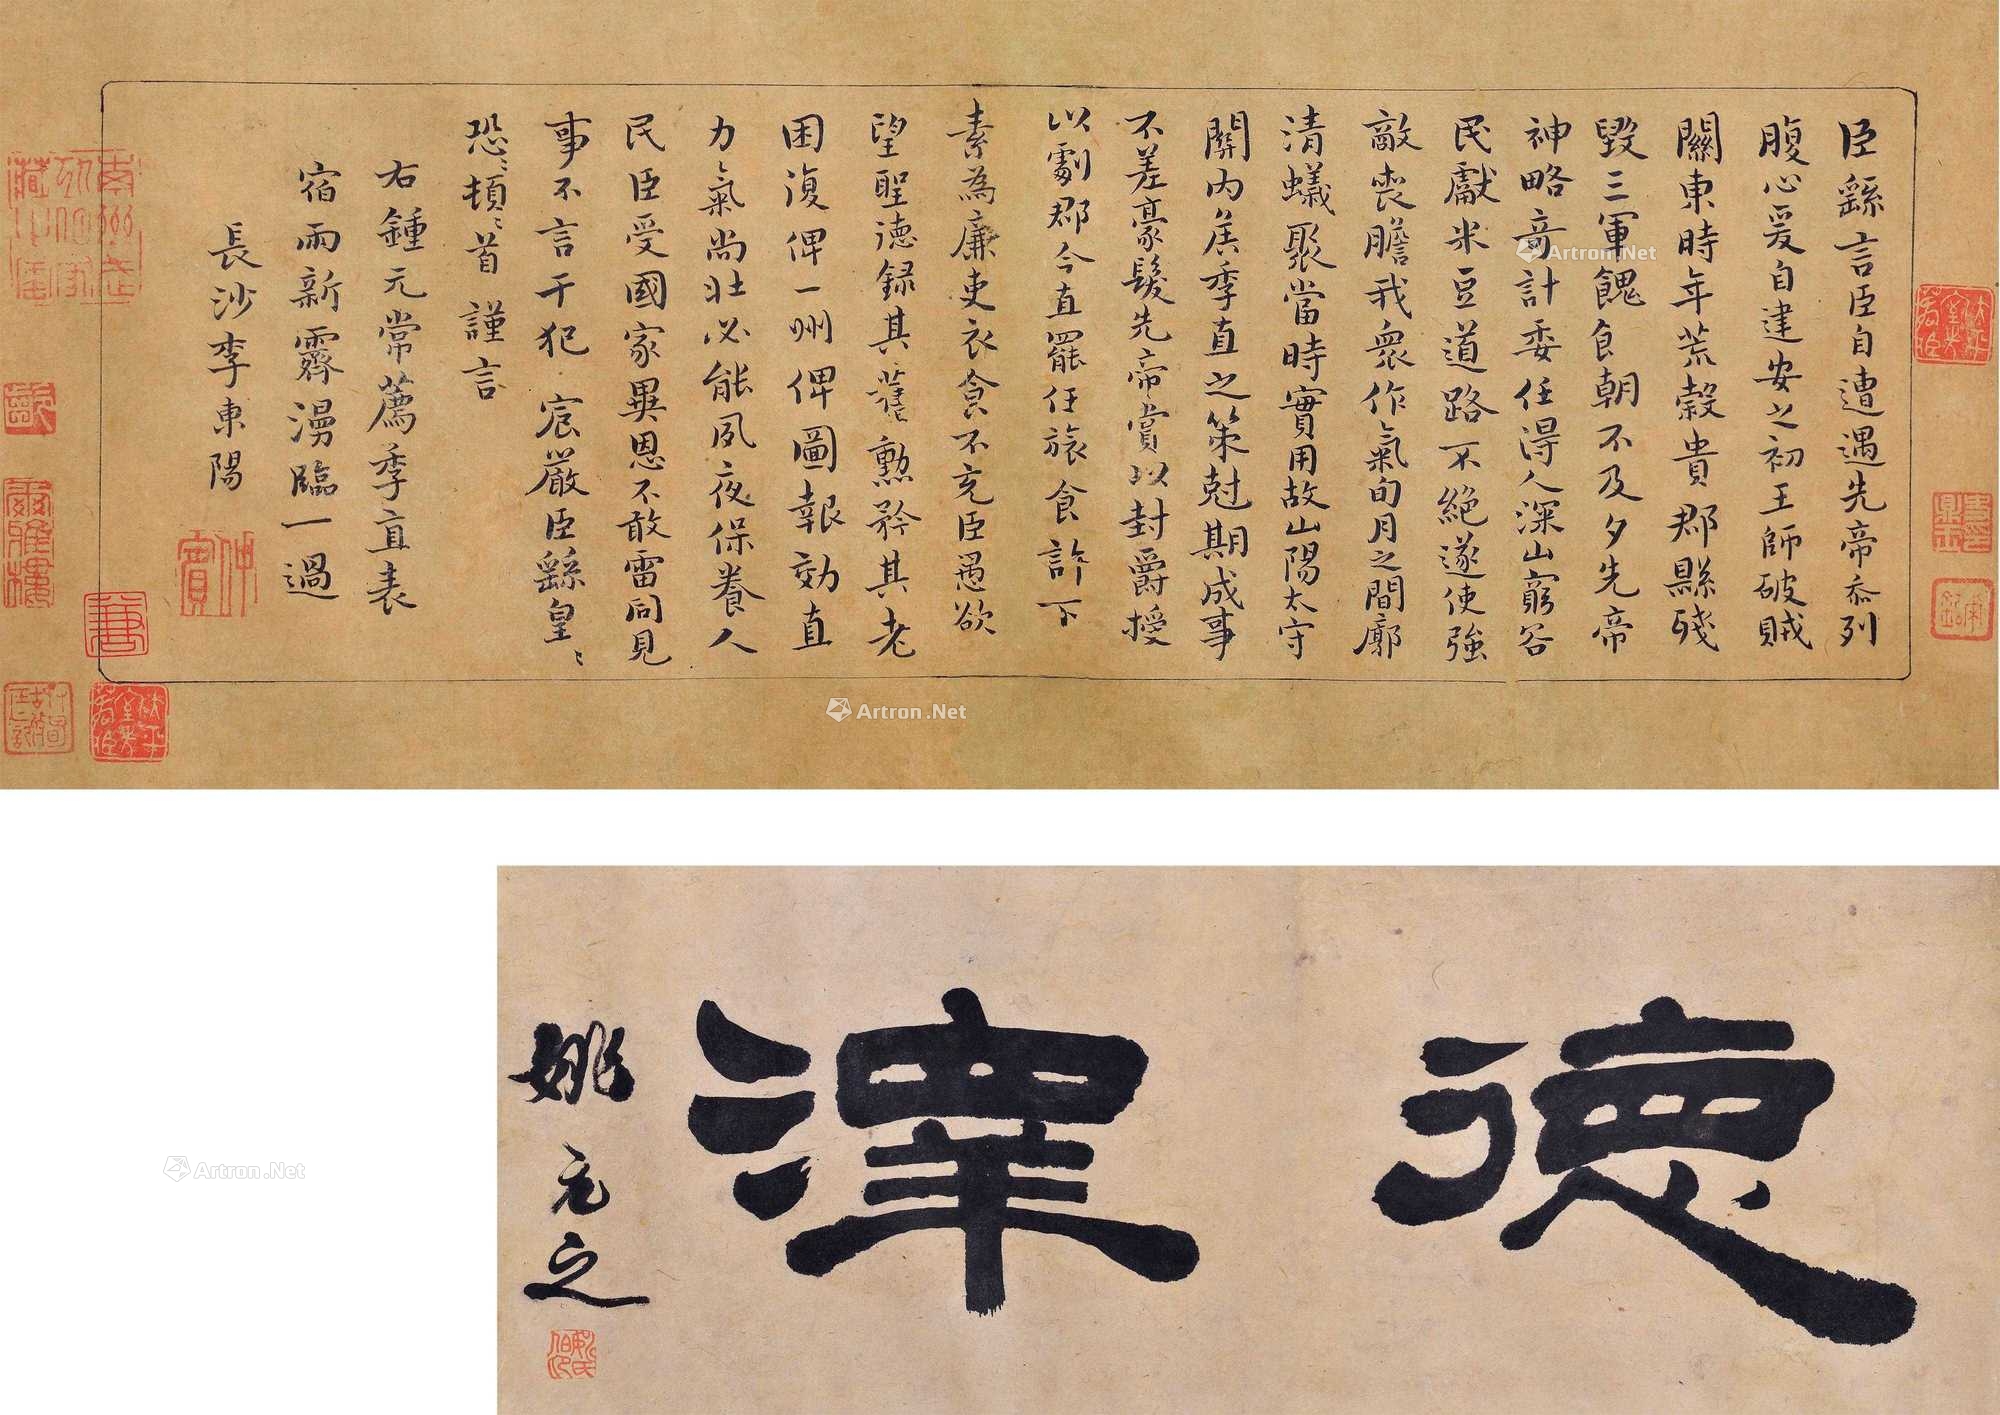 臣繇言臣自遭遇先帝忝列
腹心爰自建安之初王師破賊
關東時年荒穀貴郡縣殘
毀三軍餽食朝不及夕先帝
神略奇計委任得人深山窮谷
民獻米豆道路不絕遂使強
敵喪膽我衆作氣旬月之間廓
清蟻聚當時實用故山陽太守
關内侯季直之策尅期成事
不差豪髮先帝賞以封爵授
以劇郡今直罷任旅食許下
素為廉吏衣食不充臣愚欲
望聖德錄其舊勳矜其老
困復俾一州俾圖報効直
力氣尚壯必能夙夜保養人
民臣受國家異恩不敢雷同見
事不言干犯宸嚴臣繇皇〻
恐〻頓〻首謹言
右鍾元常薦季直表
宿雨新霽漫臨一過
長沙李東陽
德澤
姚元之
Artron.Net
Artron.Net
Artron.Net